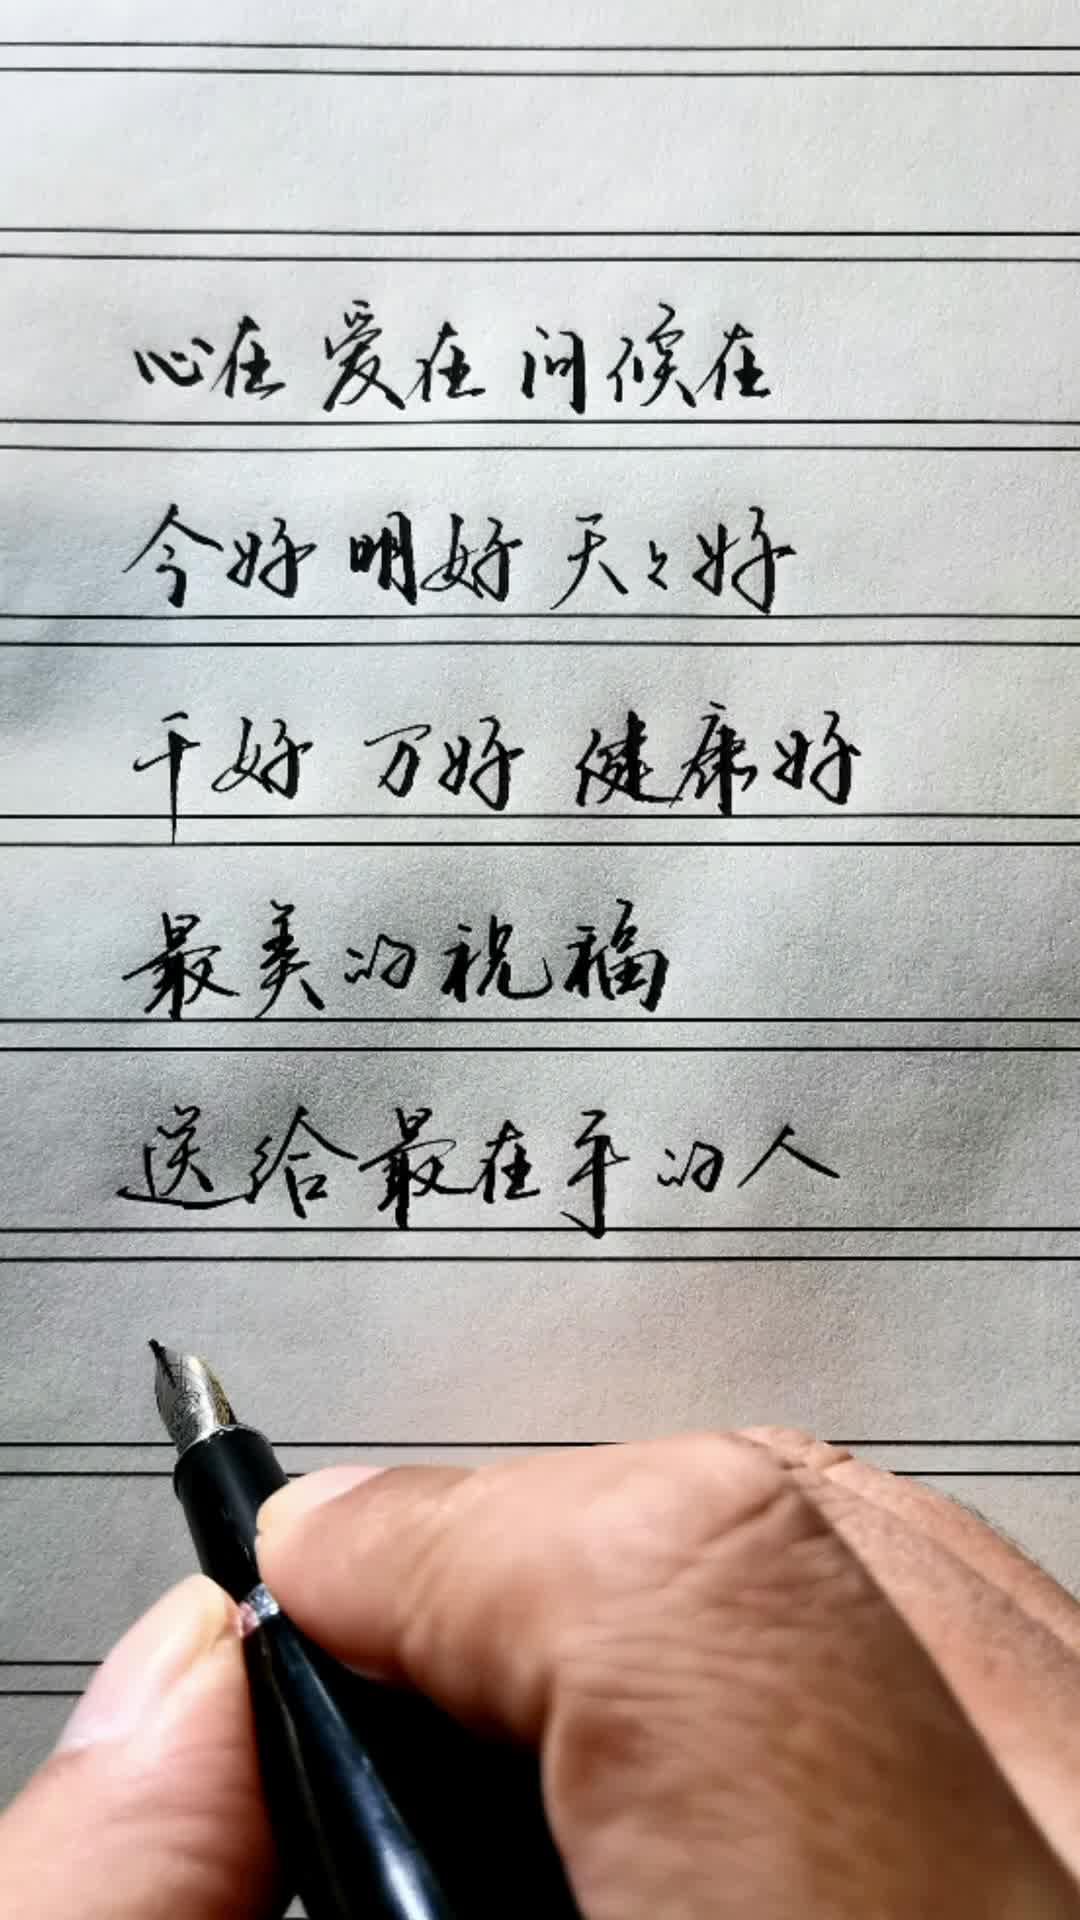 心在 爱在 问候在
今好 明好 天々好
千好 万好 健康好
最美的祝福
送给最在乎的人